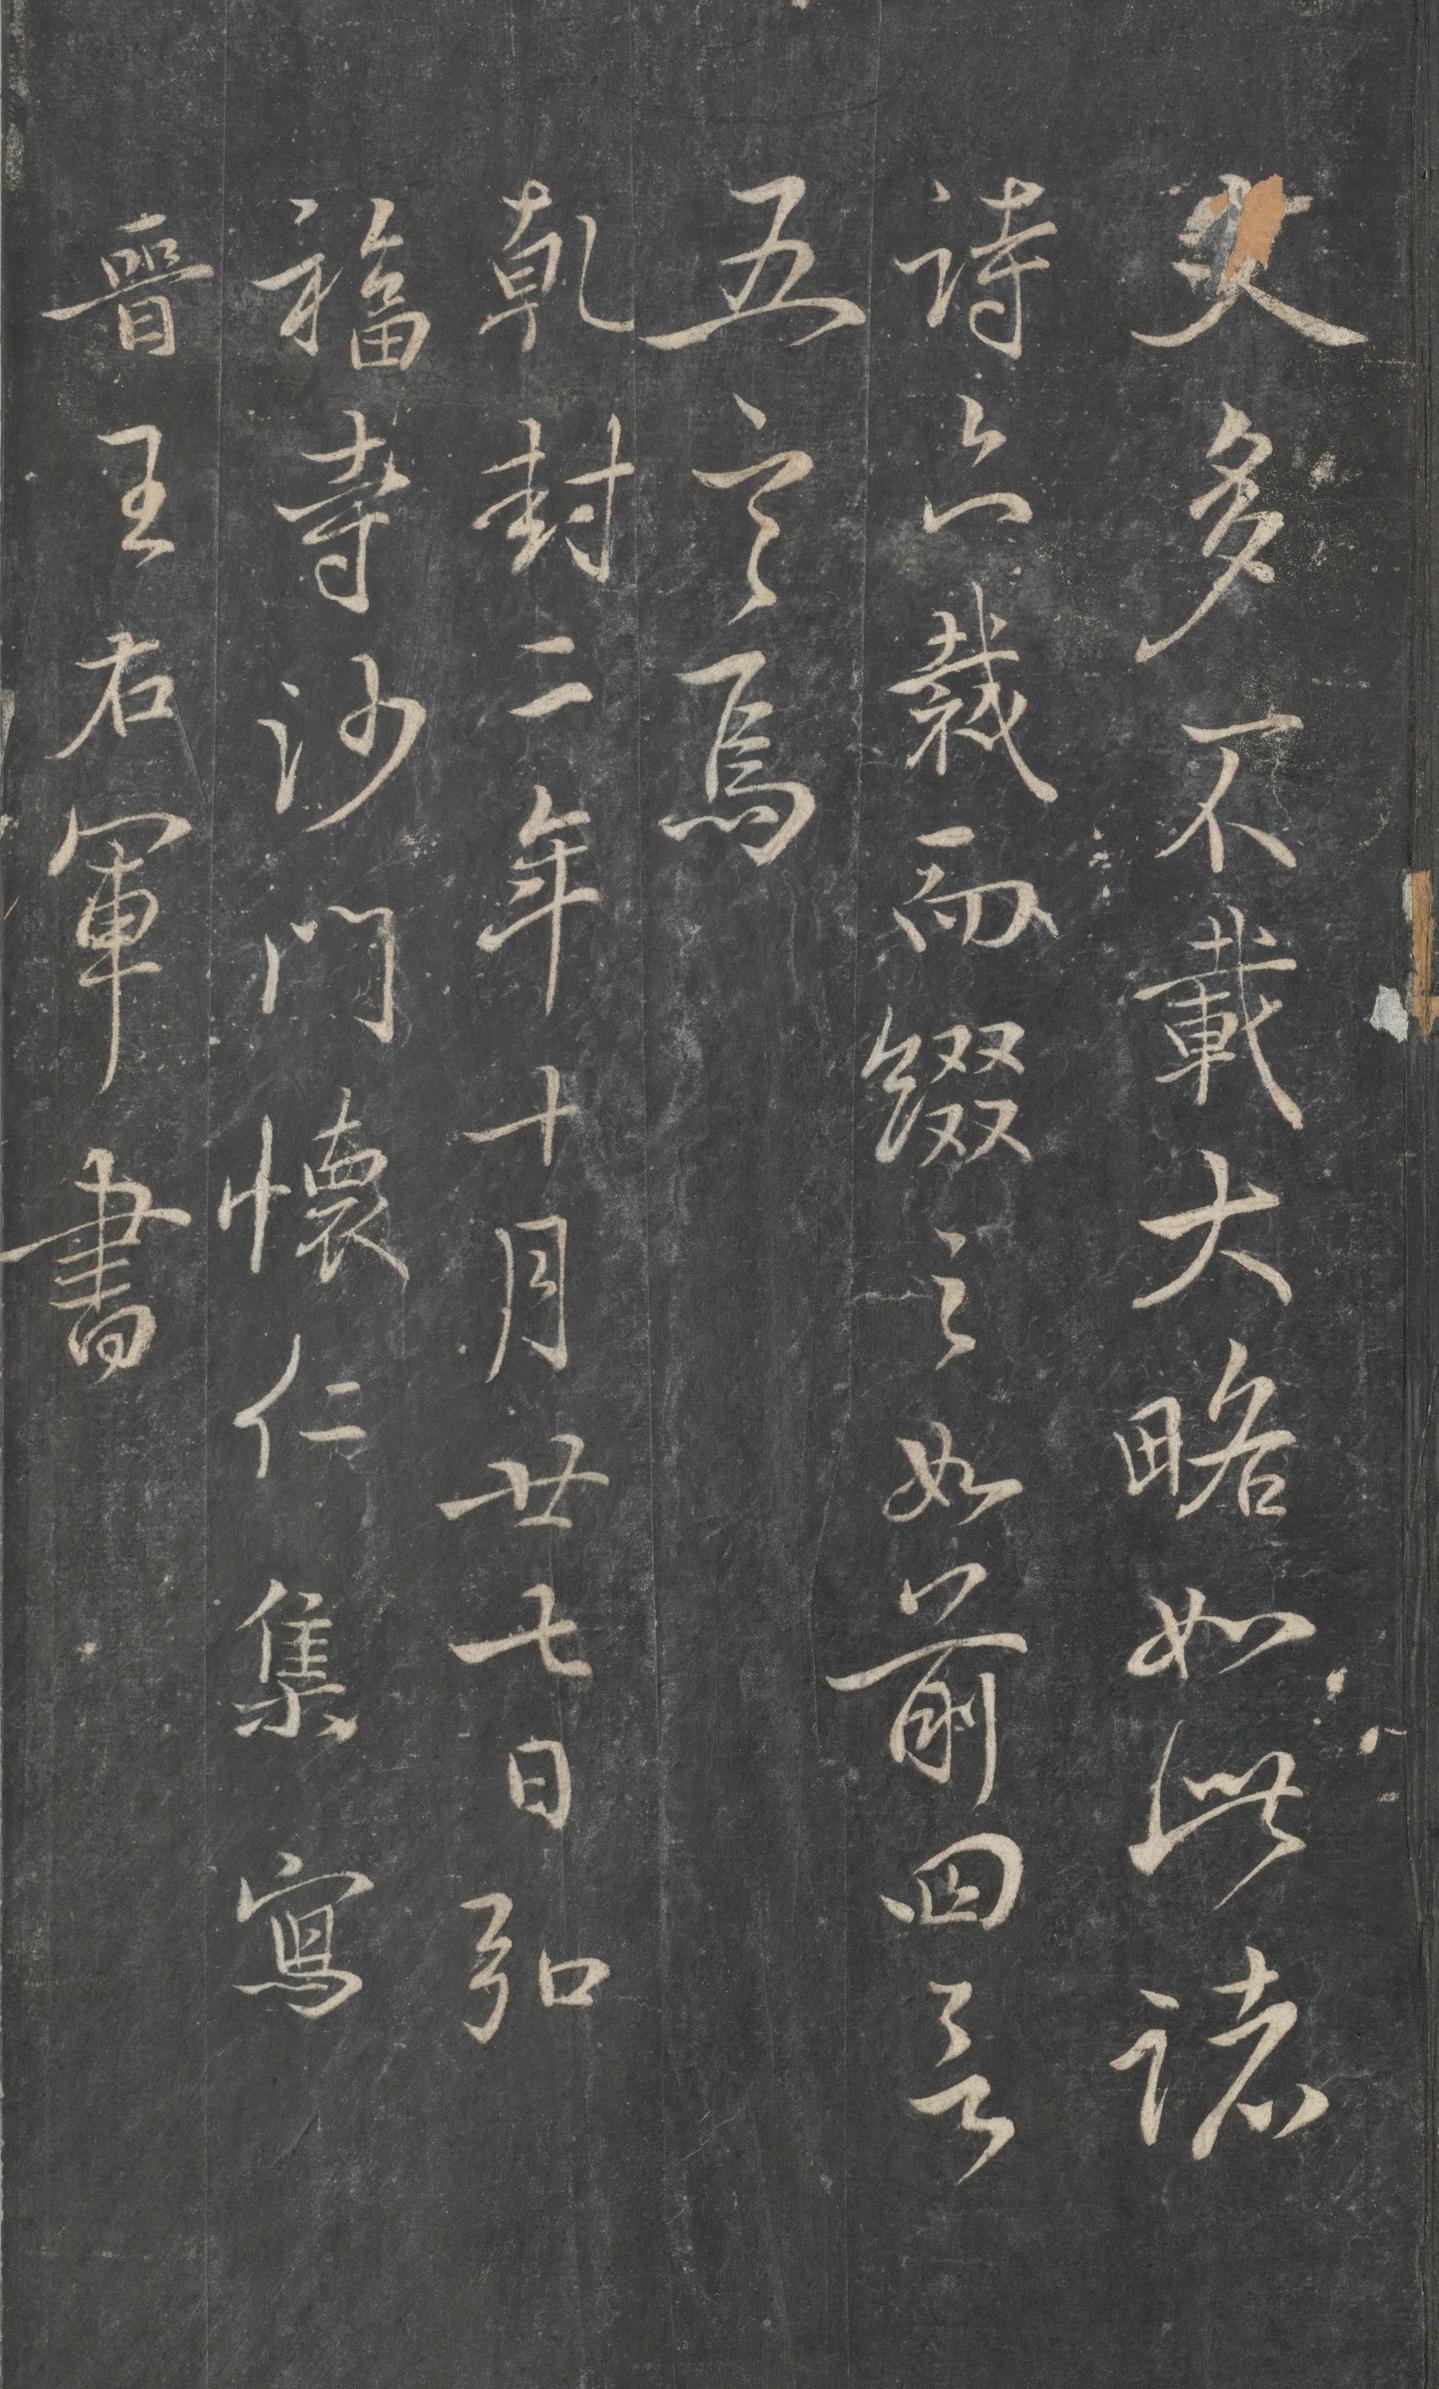 文多不載大略如此諸
詩亦裁而綴之如前四言
五言焉
乾封二年十月廿七日弘
福寺沙門懷仁集寫
晉王右軍書